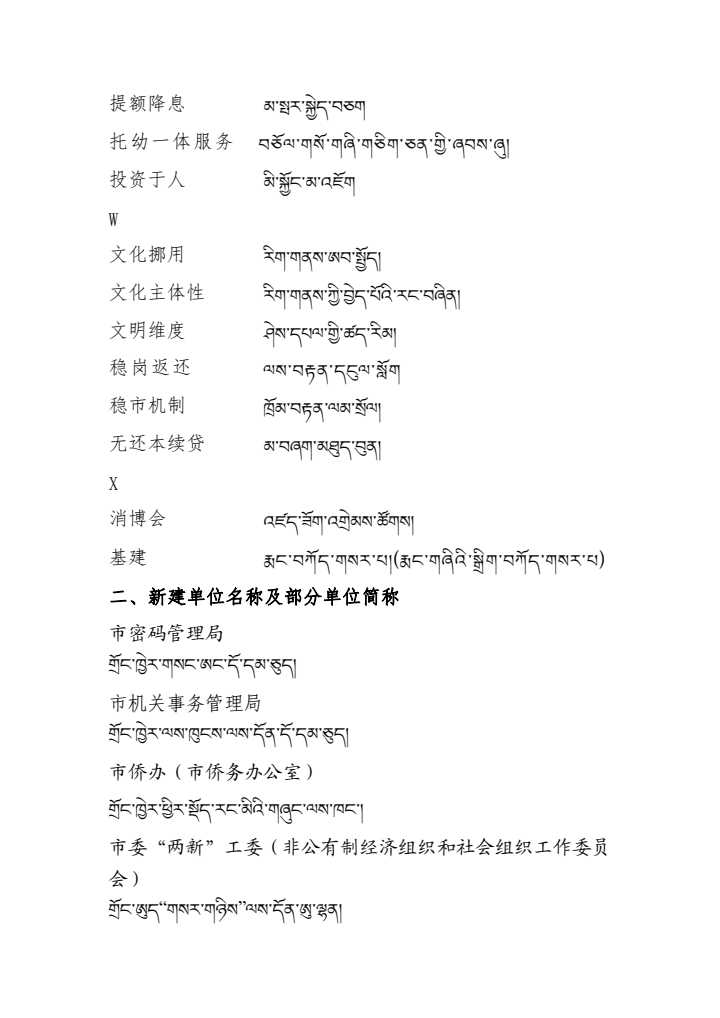 提额降息 མ་སྤར་སྐྱེད་བཅག
托幼一体服务 བཅོལ་གསོ་གཞི་གཅིག་ཅན་གྱི་ཞབས་ཞུ།
投资于人 མི་སྐྱོང་མ་འཇོག
W
文化挪用 རིག་གནས་ཨབ་སྤྱོད།
文化主体性 རིག་གནས་ཀྱི་བྱེད་པོའི་རང་བཞིན།
文明维度 ཤེས་དཔལ་གྱི་ཚད་རིམ།
稳岗返还 ལས་བརྟན་དངུལ་སློག
稳市机制 ཁྲོམ་བརྟན་ལམ་སྲོལ།
无还本续贷 མ་བཞག་མཐུད་བུན།
X
消博会 འཛད་ཟོག་འགྲེམས་ཚོགས།
基建 རྨང་བཀོད་གསར་པ།(རྨང་གཞིའི་སྒྲིག་བཀོད་གསར་པ)
二、新建单位名称及部分单位简称
市密码管理局
གྲོང་ཁྱེར་གསང་ཨང་དོ་དམ་ཅུད།
市机关事务管理局
གྲོང་ཁྱེར་ལས་ཁུངས་ལས་དོན་དོ་དམ་ཅུད།
市侨办（市侨务办公室）
གྲོང་ཁྱེར་ཕྱིར་སྡོད་རང་མིའི་གཞུང་ལས་ཁང་།
市委“两新”工委（非公有制经济组织和社会组织工作委员
会）
གྲོང་ཨུད“གསར་གཉིས”ལས་དོན་ཨུ་ལྷན།